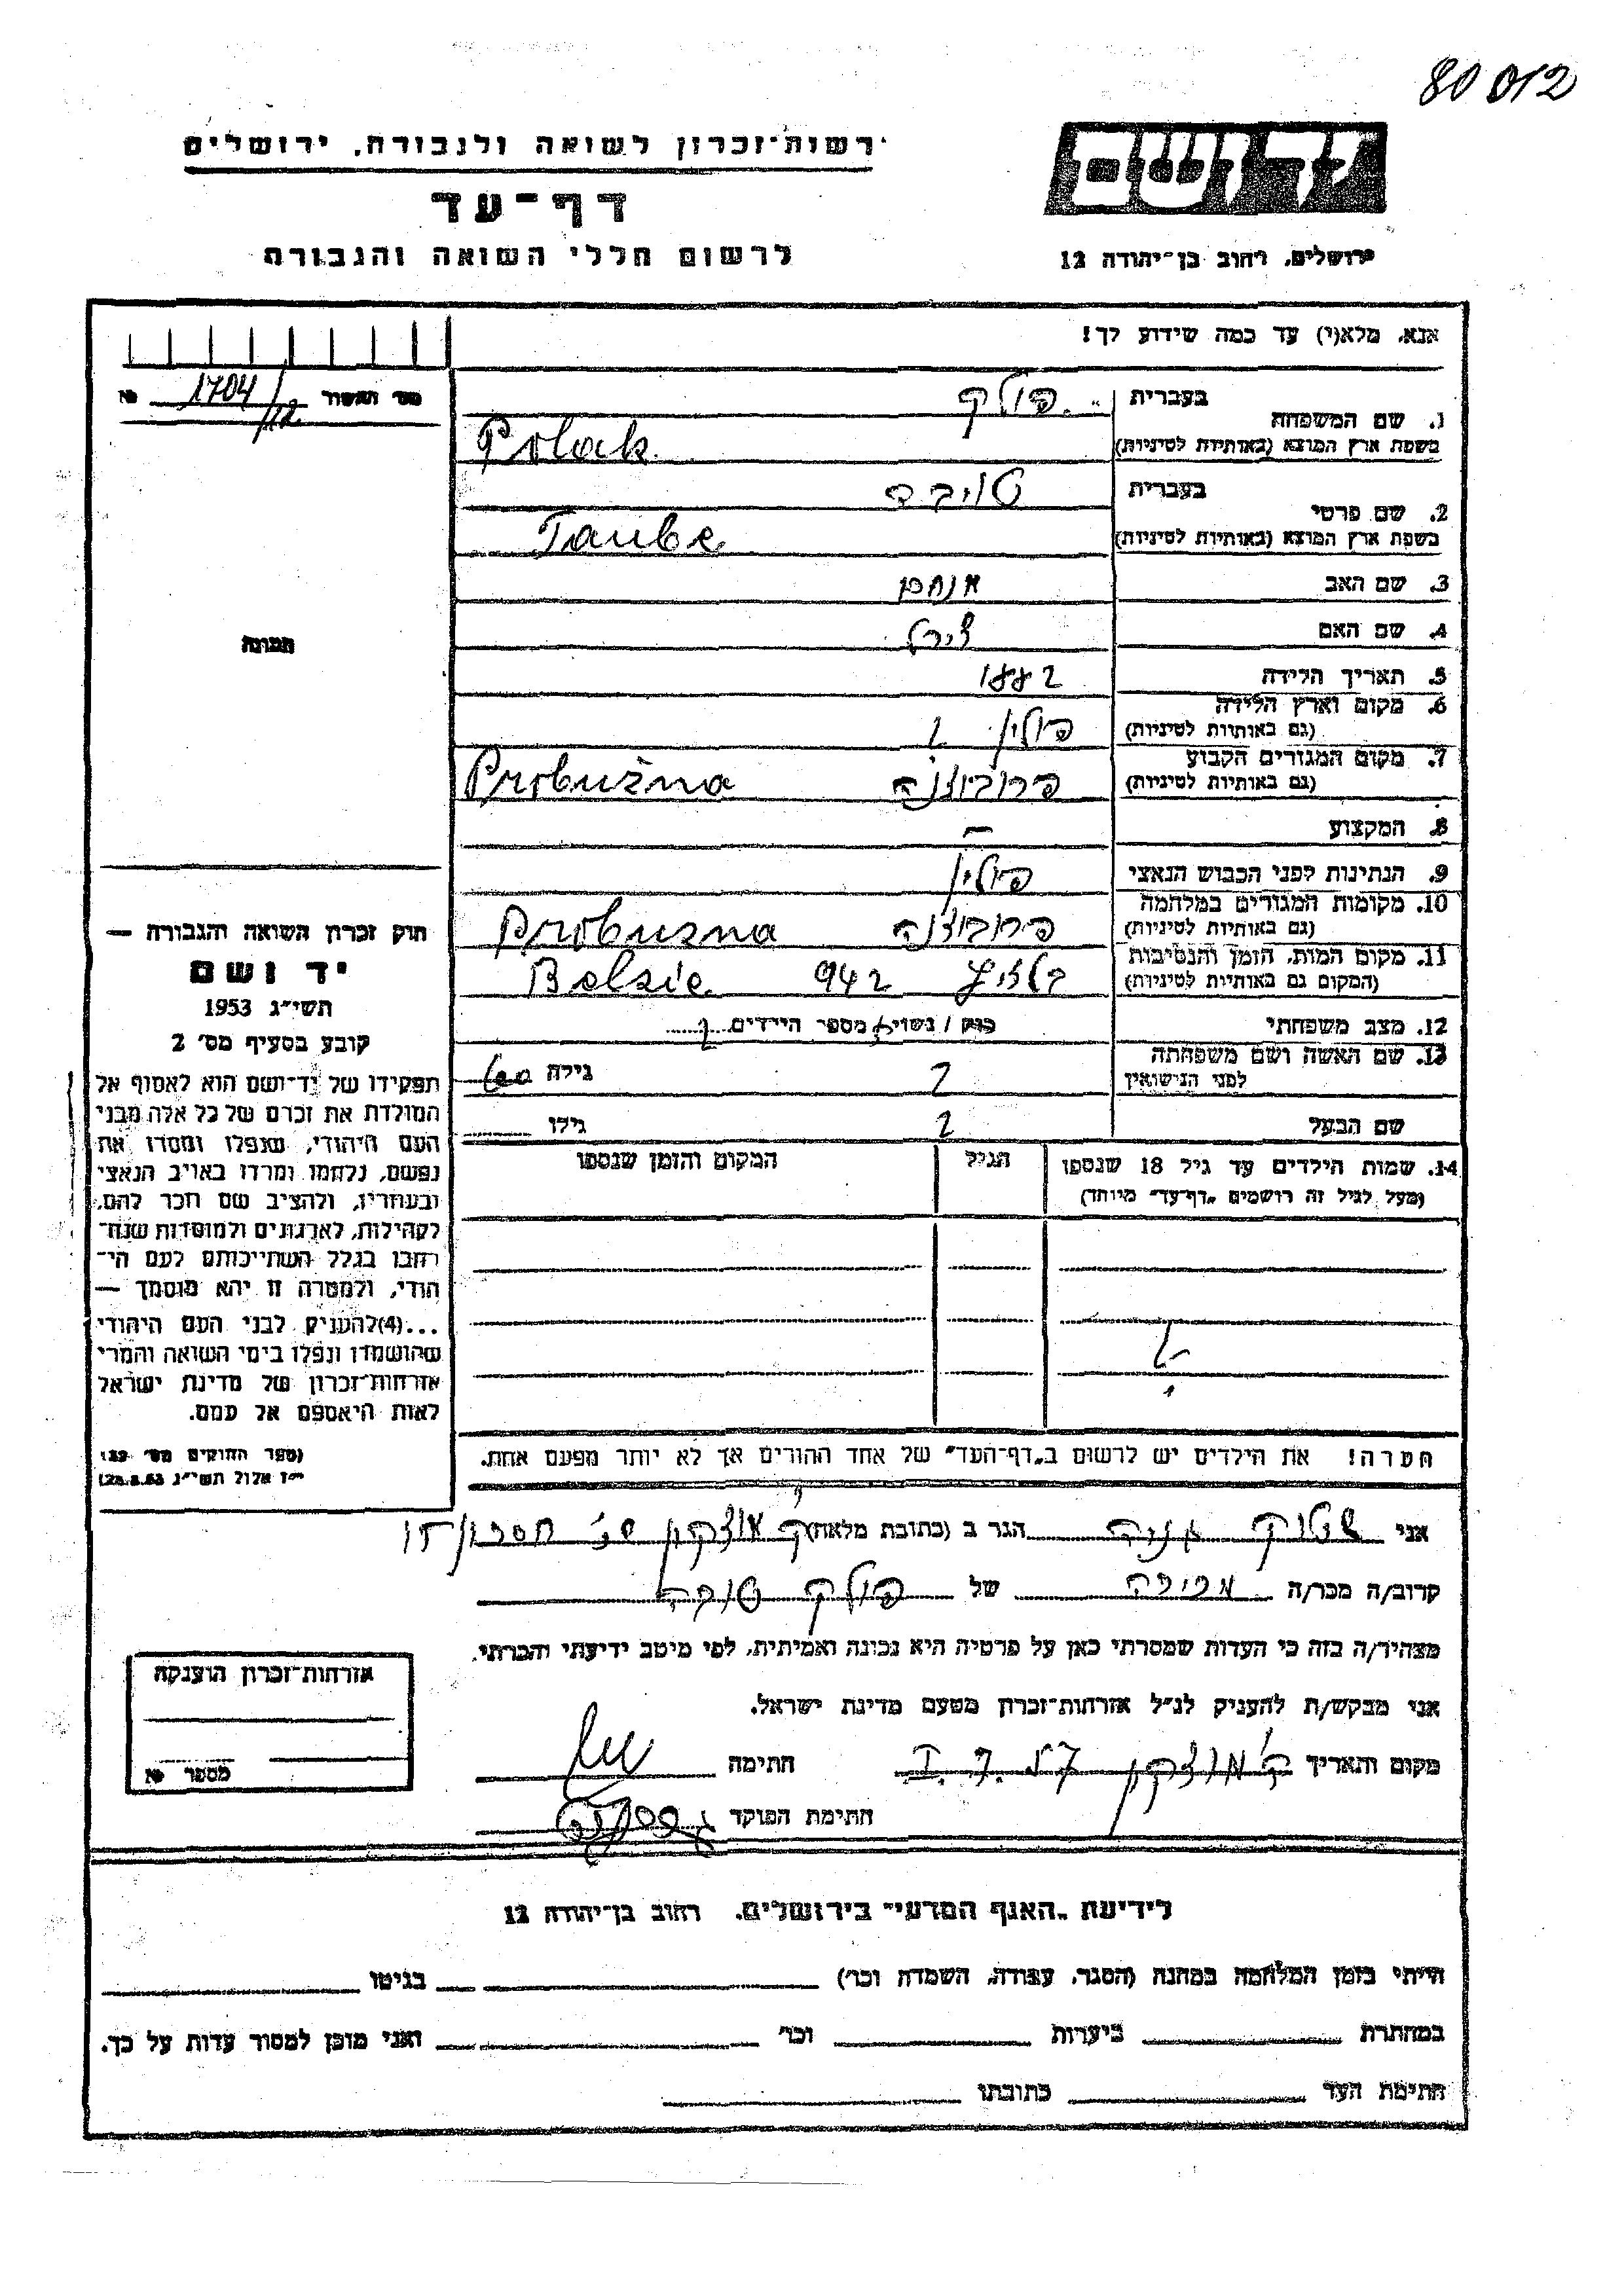 80012
יד ושם
רשות־זכרון לשואה ולגבורה, ירושלים
דף־עד
לרשום חללי השואה והגבורה
ירושלים, רחוב בן־יהודה 12
אנא, מלא(י) עד כמה שידוע לך!
מס' התשור 1704/12 №
תמונה
1. שם המשפחה בעברית פולק
בשפת ארץ המוצא (באותיות לטיניות) Polak
2. שם פרטי בעברית טויבה
בשפת ארץ המוצא (באותיות לטיניות) Taube
3. שם האב
4. שם האם
5. תאריך הלידה 1882
6. מקום וארץ הלידה
(גם באותיות לטיניות) פולין
7. מקום המגורים הקבוע
(גם באותיות לטיניות) פרוביזנה Probużna
8. המקצוע —
9. הנתינות לפני הכבוש הנאצי פולין
10. מקומות המגורים במלחמה
(גם באותיות לטיניות) Probuzna
11. מקום המות, הזמן והנסיבות
(המקום גם באותיות לטיניות) בלזיץ 942 Belzie
12. מצב משפחתי רווק / נשוי / מספר הילדים
13. שם האשה ושם משפחתה
לפני הנישואין ? גילה 60
שם הבעל ? גילו
14. שמות הילדים עד גיל 18 שנספו הגיל המקום והזמן שנספו
(מעל לגיל זה רושמים "דף־עד" מיוחד)
הערה! את הילדים יש לרשום ב"דף־העד" של אחד ההורים אך לא יותר מפעם אחת.
חוק זכרון השואה והגבורה —
יד ושם
תשי"ג 1953
קובע בסעיף מס' 2
תפקידו של יד־ושם הוא לאסוף אל
המולדת את זכרם של כל אלה מבני
העם היהודי, שנפלו ומסרו את
נפשם, נלחמו ומרדו באויב הנאצי
ובעוזריו, ולהציב שם וזכר להם,
לקהילות, לארגונים ולמוסדות שנח־
רבו בגלל השתייכותם לעם הי־
הודי, ולמטרה זו יהא מוסמך —
...(4)להעניק לבני העם היהודי
שהושמדו ונפלו בימי השואה והמרי
אזרחות־זכרון של מדינת ישראל
לאות היאספם אל עמם.
(ספר החוקים מס' 132,
י"ז אלול תשי"ג 28.8.53)
אני שטוק הגר ב (כתובת מלאה) ק מוצקין
קרוב/ה מכר/ה מכירה של פולק טובה
מצהיר/ה בזה כי העדות שמסרתי כאן על פרטיה היא נכונה ואמיתית, לפי מיטב ידיעתי והכרתי.
אני מבקש/ת להעניק לנ"ל אזרחות־זכרון מטעם מדינת ישראל.
מקום ותאריך ק מוצקין חתימה
חתימת הפוקד
אזרחות־זכרון הוענקה
מספר №
לידיעת "האגף המדעי" בירושלים, רחוב בן־יהודה 12
הייתי בזמן המלחמה במחנה (הסגר, עבודה, השמדה וכו') בגיטו
במחתרת ביערות וכו' ואני מוכן למסור עדות על כך.
חתימת העד כתובתו